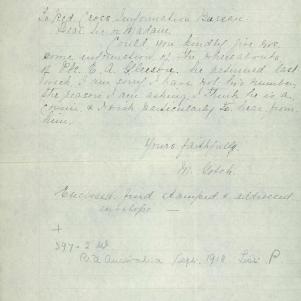 To Red Cross Information Bureau
Dear Sir or Madam
Could you kindly give me
some information of the whereabouts
of Pte. E. A. Gleeson. he returned last
week, I am sorry I have not his number.
the reason I am asking I think he is a
cousin, & I wish particularly to hear from
him.
Yours faithfully
M.
Enclosed find stamped & addressed
envelope —
+
Australia Sept. 1918 P